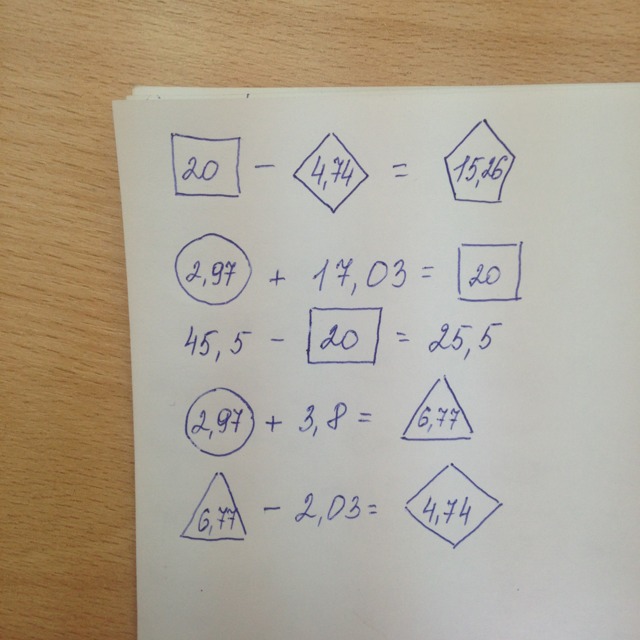 20 - 4,74 = 15,26
2,97 + 17,03 = 20
45,5 - 20 = 25,5
2,97 + 3,8 = 6,77
6,77 - 2,03 = 4,74